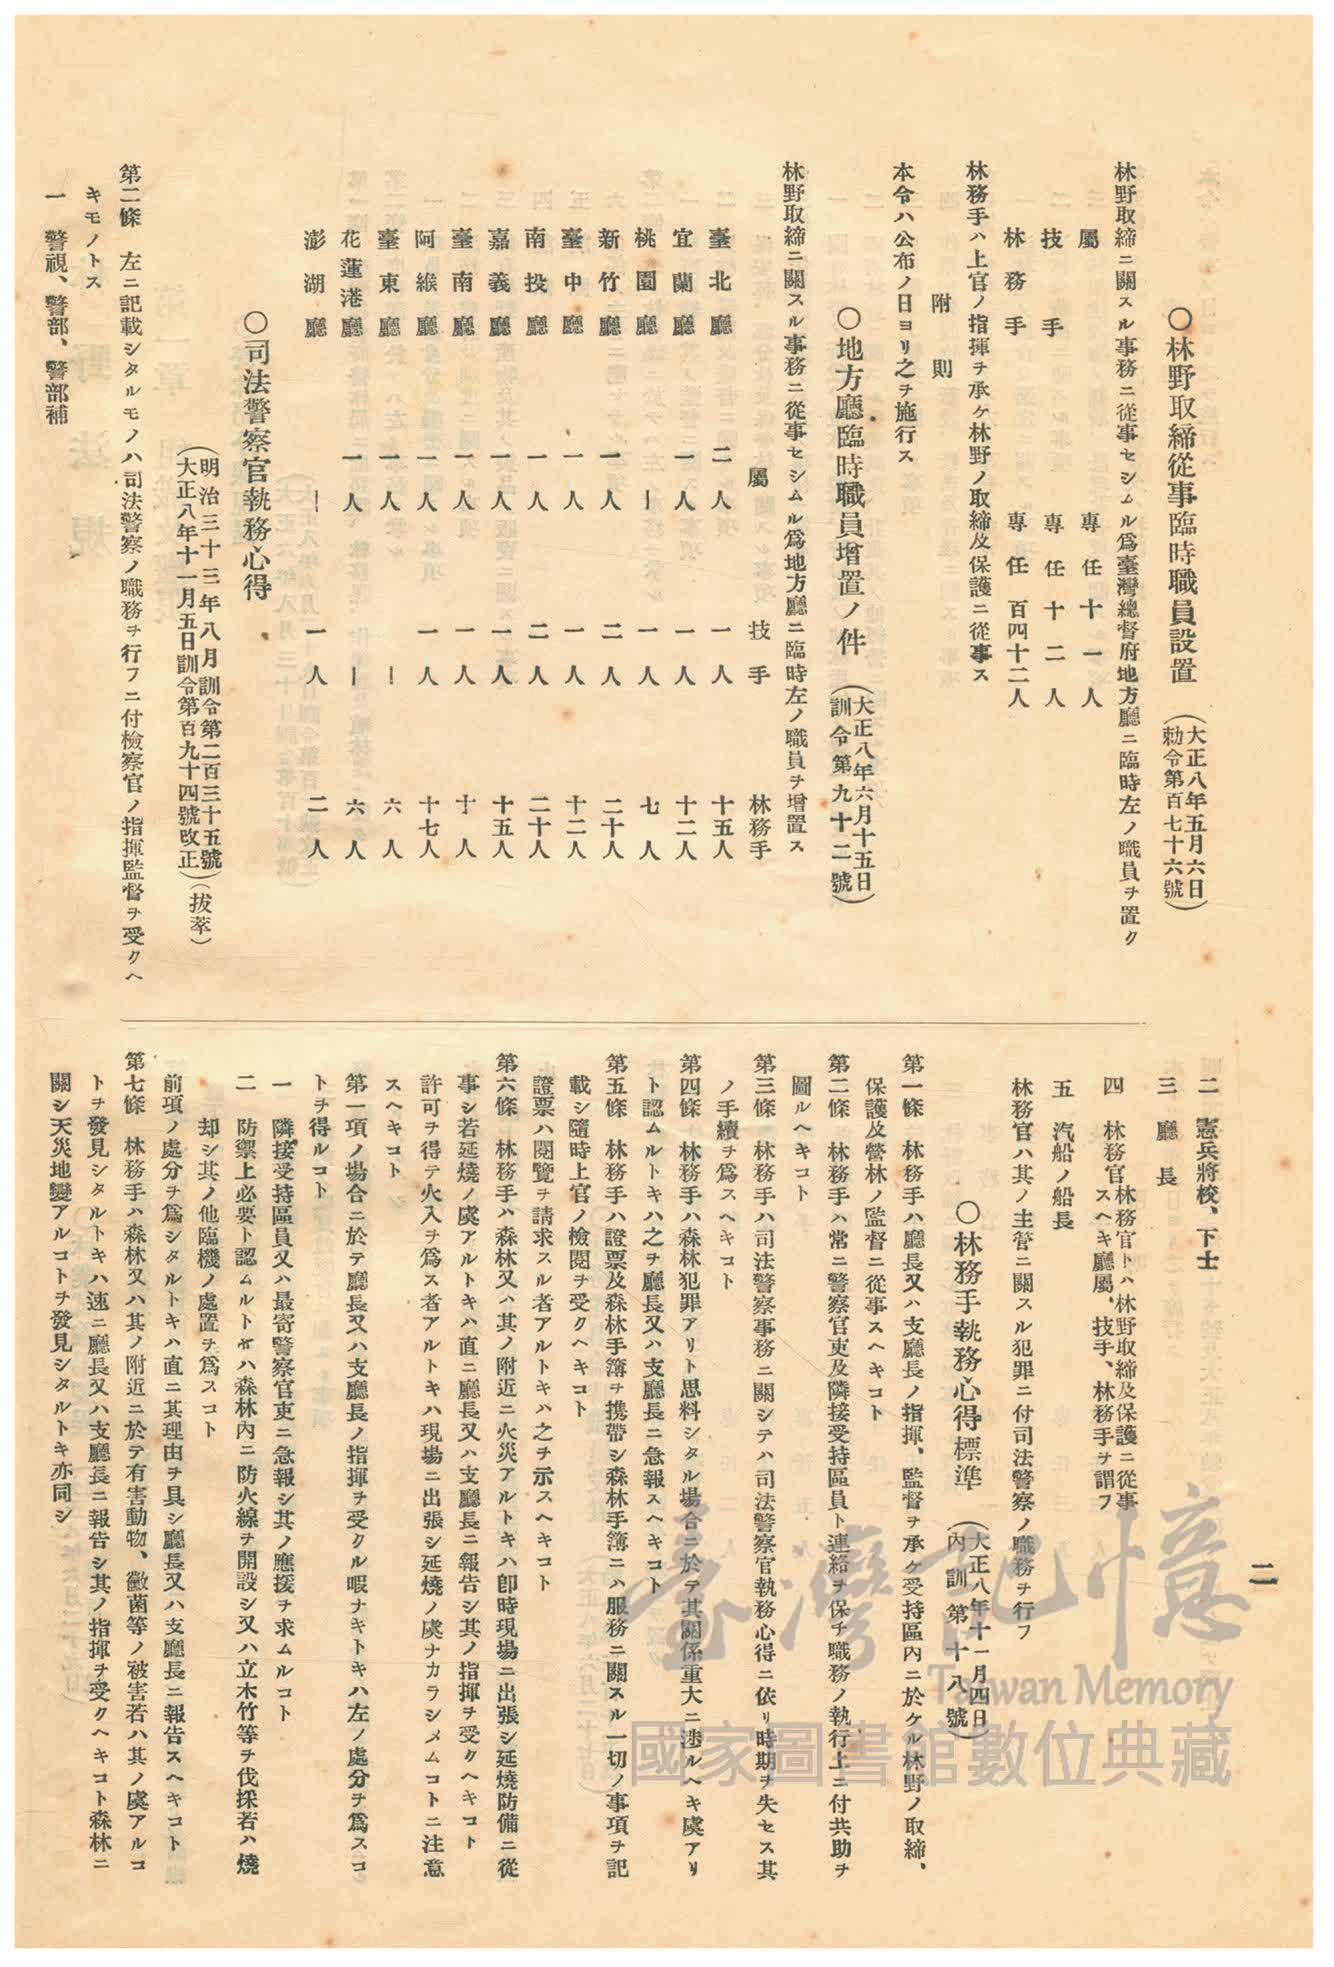 ○林野取締從事臨時職員設置
(大正八年五月六日
勅令第百七十六號)
林野取締ニ關スル事務ニ從事セシムル爲臺灣總督府地方廳ニ臨時左ノ職員ヲ置ク
屬 專任十一人
技手 專任十二人
林務手 專任百四十二人
林務手ハ上官ノ指揮ヲ承ケ林野ノ取締及保護ニ從事ス
附則
本令ハ公布ノ日ヨリ之ヲ施行ス
○地方廳臨時職員增置ノ件
(大正八年六月十五日
訓令第九十二號)
林野取締ニ關スル事務ニ從事セシムル爲地方廳ニ臨時左ノ職員ヲ增置ス
屬 技手 林務手
臺北廳 二人 一人 十五人
宜蘭廳 一人 一人 十二人
桃園廳 ー 一人 七人
新竹廳 一人 二人 二十人
臺中廳 一人 一人 十二人
南投廳 一人 二人 二十人
嘉義廳 一人 一人 十五人
臺南廳 一人 一人 十人
阿緱廳 一人 一人 十七人
臺東廳 一人 ー 六人
花蓮港廳 一人 ー 六人
澎湖廳 ー 一人 二人
○司法警察官執務心得
(明治三十三年八月訓令第二百三十五號
大正八年十一月五日訓令第百九十四號改正)(拔萃)
第二條 左ニ記載シタルモノハ司法警察ノ職務ヲ行フニ付檢察官ノ指揮監督ヲ受クヘ
キモノトス
一 警視、警部、警部補
二
二 憲兵將校、下士
三 廳長
四 林務官 林務官トハ林野取締及保護ニ從事
スヘキ廳屬、技手、林務手ヲ謂フ
五 汽船ノ船長
林務官ハ其ノ主管ニ關スル犯罪ニ付司法警察ノ職務ヲ行フ
○林務手執務心得標準
(大正八年十一月四日
內訓第十八號)
第一條 林務手ハ廳長又ハ支廳長ノ指揮、監督ヲ承ケ受持區內ニ於ケル林野ノ取締、
保護及營林ノ監督ニ從事スヘキコト
第二條 林務手ハ常ニ警察官吏及隣接受持區員ト連絡ヲ保チ職務ノ執行上ニ付共助ヲ
圖ルヘキコト
第三條 林務手ハ司法警察事務ニ關シテハ司法警察官執務心得ニ依リ時期ヲ失セス其
ノ手續ヲ爲スヘキコト
第四條 林務手ハ森林犯罪アリト思料シタル場合ニ於テ其關係重大ニ涉ルヘキ虞アリ
ト認ムルトキハ之ヲ廳長又ハ支廳長ニ急報スヘキコト
第五條 林務手ハ證票及森林手簿ヲ携帶シ森林手簿ニハ服務ニ關スル一切ノ事項ヲ記
載シ隨時上官ノ檢閱ヲ受クヘキコト
證票ハ閱覽ヲ請求スル者アルトキハ之ヲ示スヘキコト
第六條 林務手ハ森林又ハ其ノ附近ニ火災アルトキハ卽時現場ニ出張シ延燒防備ニ從
事シ若延燒ノ虞アルトキハ直ニ廳長又ハ支廳長ニ報告シ其ノ指揮ヲ受クヘキコト
許可ヲ得テ火入ヲ爲ス者アルトキハ現場ニ出張シ延燒ノ虞ナカラシメムコトニ注意
スヘキコト
第一項ノ場合ニ於テ廳長又ハ支廳長ノ指揮ヲ受クル暇ナキトキハ左ノ處分ヲ爲スコ
トヲ得ルコト
一 隣接受持區員又ハ最寄警察官吏ニ急報シ其ノ應援ヲ求ムルコト
二 防禦上必要ト認ムルトキハ森林內ニ防火線ヲ開設シ又ハ立木竹等ヲ伐採若ハ燒
却シ其ノ他臨機ノ處置ヲ爲スコト
前項ノ處分ヲ爲シタルトキハ直ニ其理由ヲ具シ廳長又ハ支廳長ニ報告スヘキコト
第七條 林務手ハ森林又ハ其ノ附近ニ於テ有害動物、黴菌等ノ被害若ハ其ノ虞アルコ
トヲ發見シタルトキハ速ニ廳長又ハ支廳長ニ報告シ其ノ指揮ヲ受クヘキコト森林ニ
關シ天災地變アルコトヲ發見シタルトキ亦同シ
臺灣記憶
Taiwan Memory
國家圖書館數位典藏